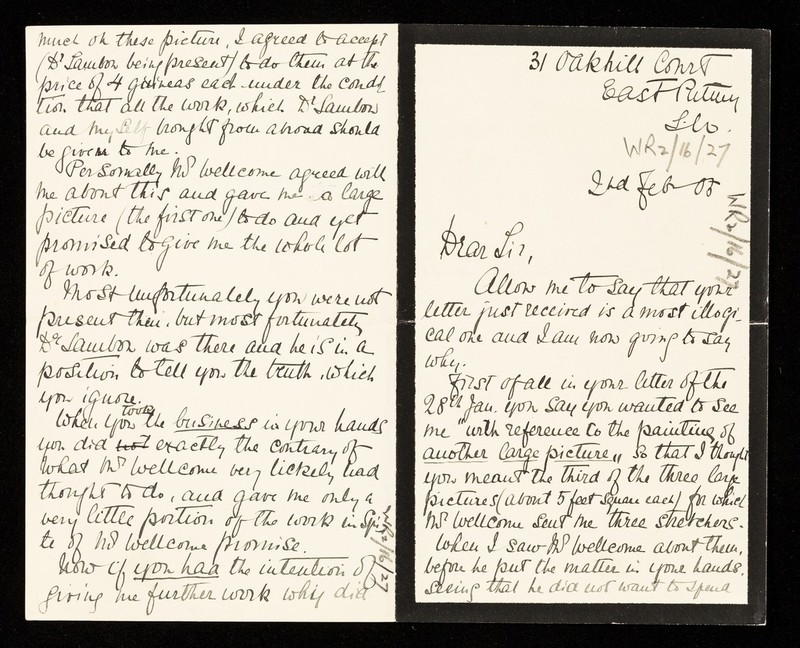 31 Oakhill Court
East Putney
S.W.
WR2/16/27
2nd Feb 05
WR2/16/27
Dear Sir,
Allow me to say that your
letter just received is a most illogi-
cal one and I am now going to say
why.
First of all in your letter of the
28th Jan. you say you wanted to see
me "with reference to the painting of
another large picture„ so that I thought
you meant the third of the three large
pictures (about 5 feet square each) for which
Mr Wellcome sent me three stretchers.
When I saw Mr Wellcome about them,
before he put the matter in your hands.
Seeing that he did not want to spend
much on these picture, I agreed to accept
(Dr Sambon being present) to do them at the
price of 4 guineas each under the condi
tion that all the work, which Dr Sambon
and my self brought from abroad should
be given to me.
Personally Mr Wellcome agreed with
me about this and gave me a large
picture (the first one) to do and yet
promised to give me the whole lot
of work.
Most unfortunately you were not
present then, but most fortunately
Dr Sambon was there and he is in a
position to tell you the truth, which
you ignore.
When you took the business in your hands
you did not exactly the contrary of
what Mr Wellcome very lickely had
thought to do, and gave me only a
very little portion of the work in Spi
te of Mr Wellcome promise.
Now if you had the intention of
giving me further work why did
WR2/16/27